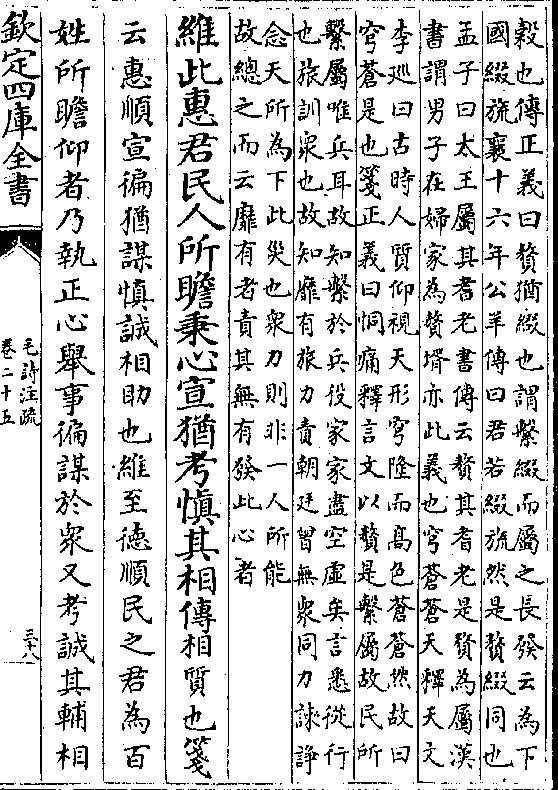 穀也傳正義曰贅猶綴也謂繫綴而屬之長發云為下
國綴旒襄十六年公羊傳曰君若綴旒然是贅綴同也
孟子曰太王屬其耆老書傳云贅其耆老是贅為屬漢
書謂男子在婦家為贅壻亦此義也穹蒼蒼天釋天文
李廵曰古時人質仰視天形穹隆而髙色蒼蒼然故曰
穹蒼是也箋正義曰恫痛釋言文以贅是繫屬故民所
繫屬唯兵耳故知繫於兵役家家盡空虛矣言悉從行
也旅訓衆也故知靡有旅力責朝廷曽無衆同力諫諍
念天所為下此災也衆力則非一人所能
故總之而云靡有者責其無有發此心者
維此惠君民人所瞻秉心宣猶考慎其相傳相質也箋
云惠順宣徧猶謀慎誠相助也維至德順民之君為百
姓所瞻仰者乃執正心舉事徧謀於衆又考誠其輔相
欽定四庫全書
毛詩注疏
卷二十五
三十八